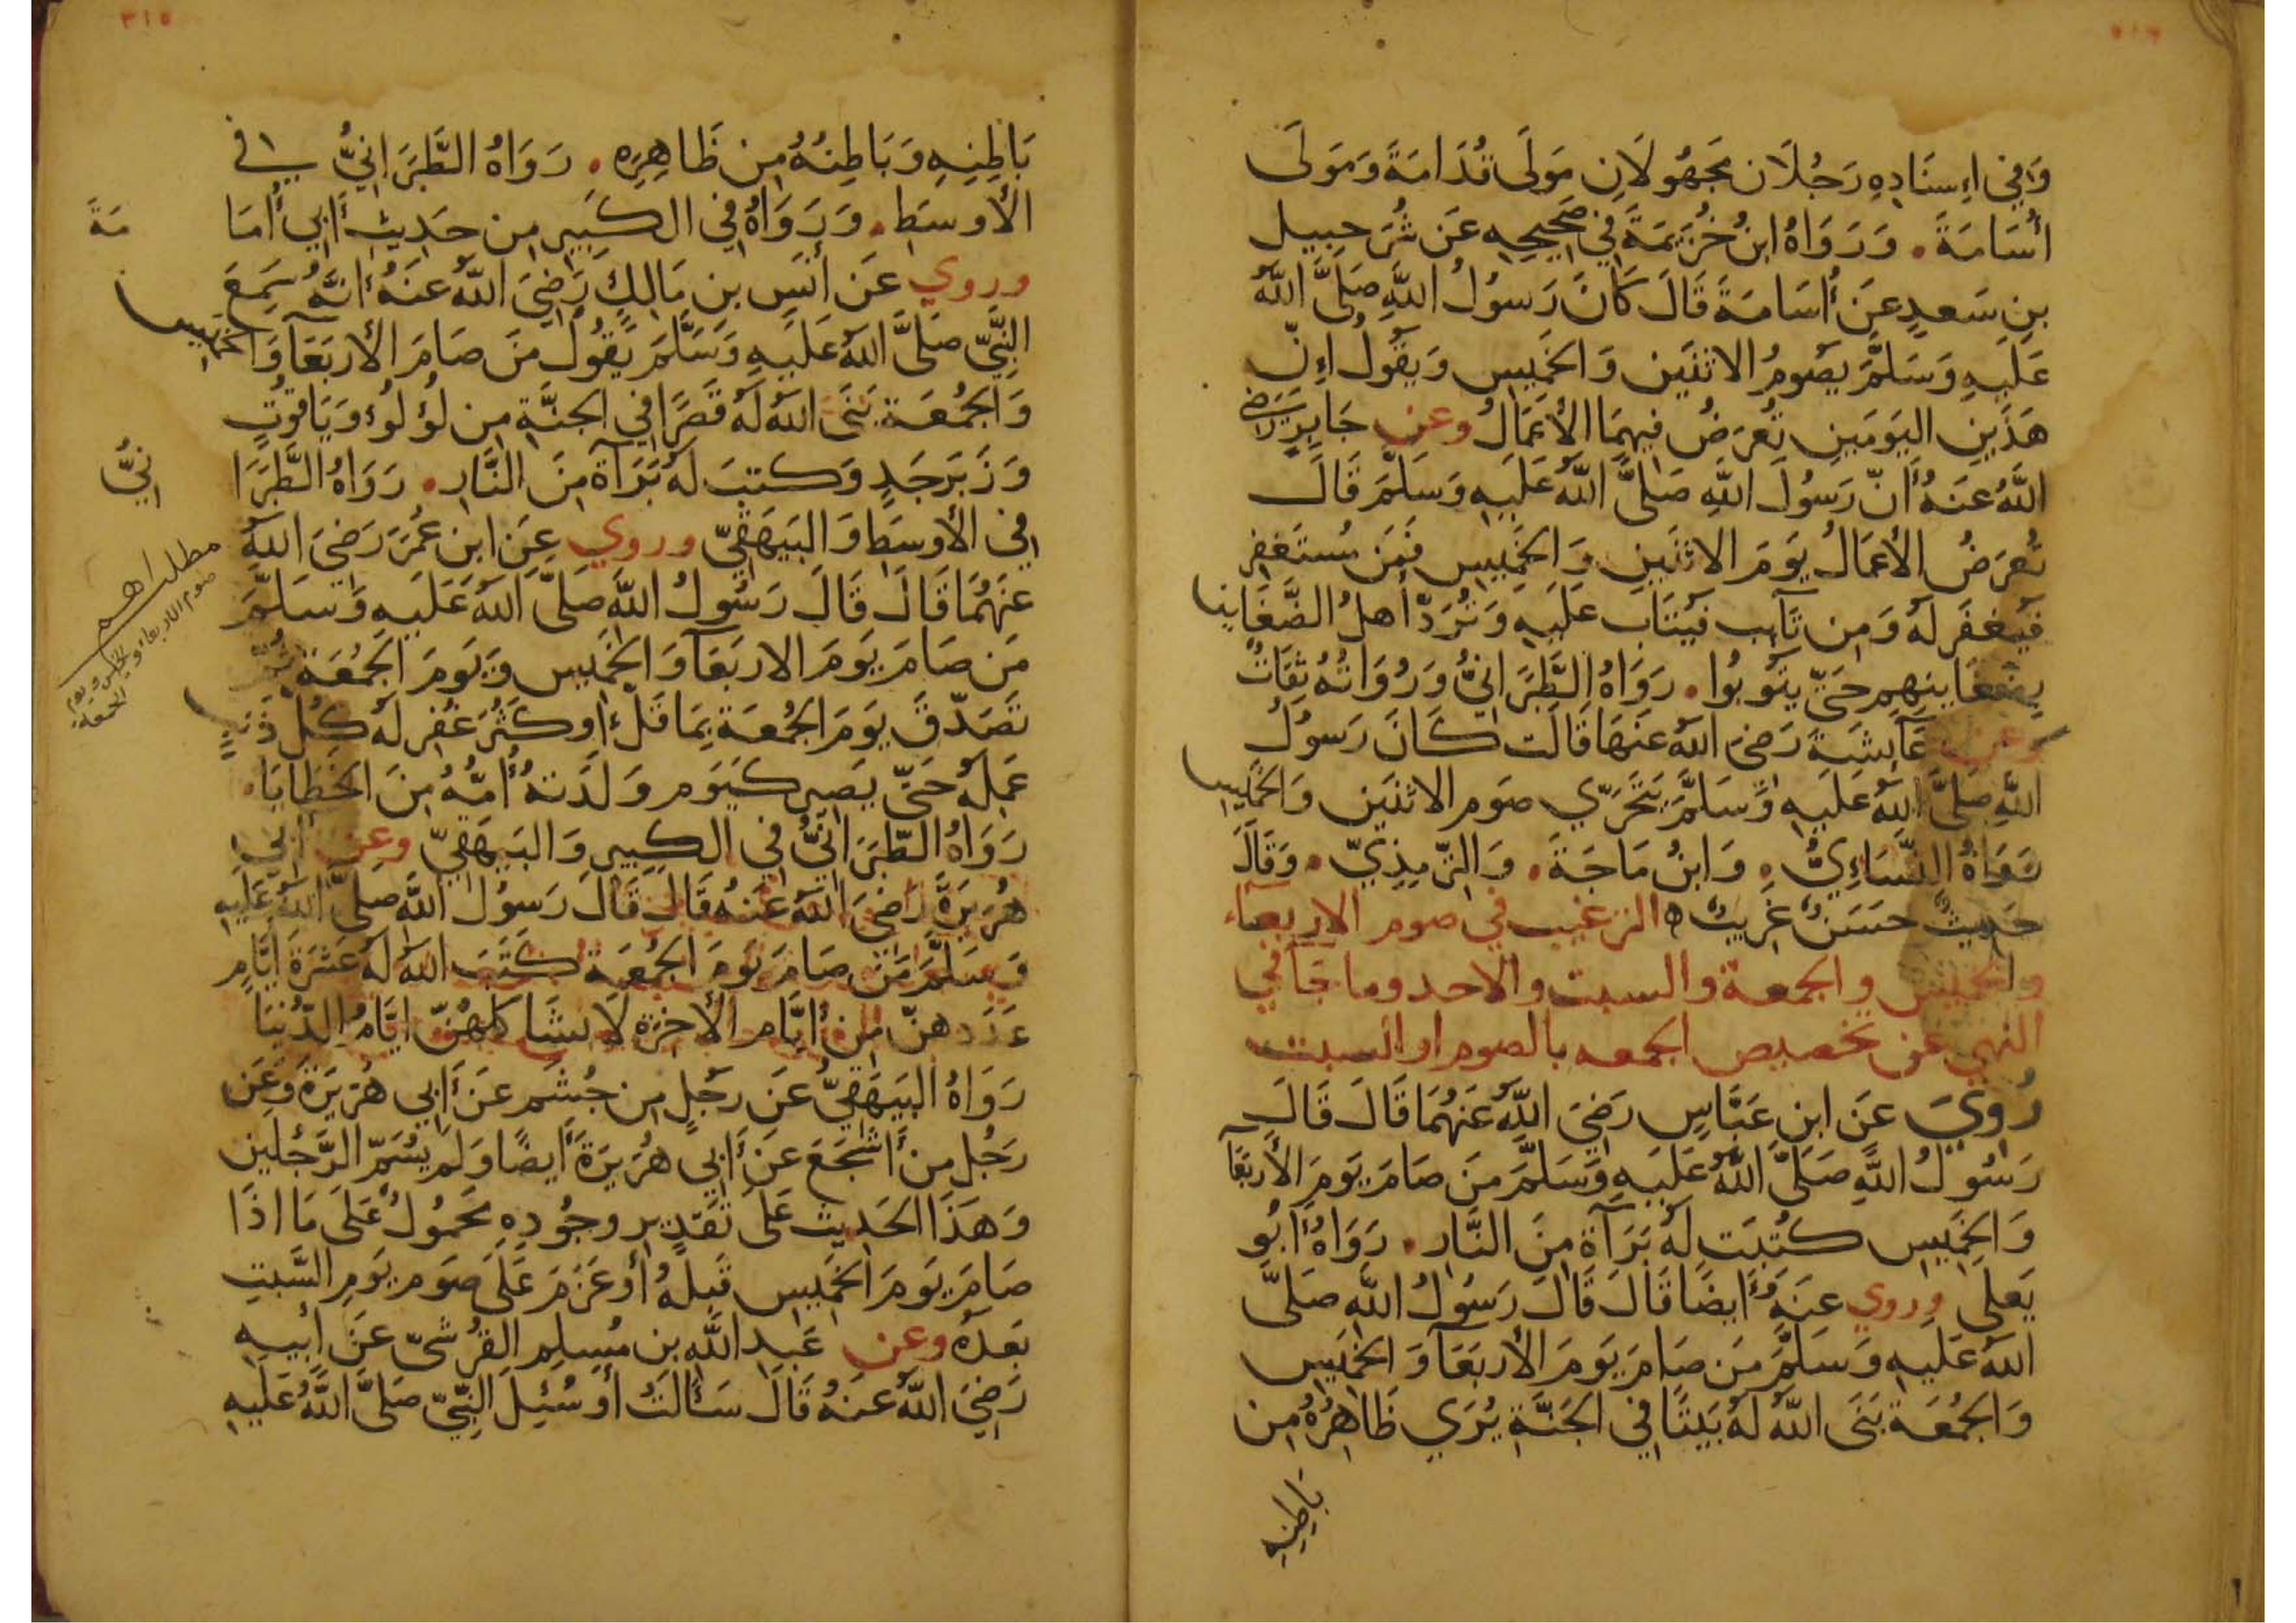 وَفِي إِسنَادِهِ رَجُلَان مَجهُولَانِ مَولَى قُدَامَةَ وَمَولَى
أُسَامَةَ . وَرَوَاهُ ابنُ خُزَيمَةَ فِي صَحِيحِهِ عَن شُرَحبِيل
بنِ سَعدٍ عَن أُسَامَةَ قَالَ كَانَ رَسُولُ اللَّهِ صَلَّى اللَّهُ
عَلَيهِ وَسَلَّمَ يَصُومُ الاثنَين وَالخَمِيس وَيَقُولُ إِنّ
هَذَينِ اليَومَينِ تُعرَضُ فِيهِمَا الأَعمَالُ وعن جَابِرٍ رَضِيَ
اللَّهُ عَنهُ أَنّ رَسُولَ اللَّهِ صَلَّى اللَّهُ عَلَيهِ وَسَلَّمَ قَالَ
تُعرَضُ الأَعمَالُ يَومَ الاثنَينِ وَالخَمِيسِ فَمَن مُستَغفِر
فَيُغفَر لَهُ وَمِن تَآئِب فَيُتَاب عَلَيهِ وَتُرَدّ أَهلُ الضَّغَاينِ
بِضَغَاينِهِم حَتّى يَتُوبُوا . رَوَاهُ الطَّبَرَانِيُّ وَرُوَاتُهُ ثِقَاتٌ
وعن عَآئِشَةَ رَضِيَ اللَّهُ عَنهَا قَالَت كَانَ رَسُولُ
اللَّهِ صَلَّى اللَّهُ عَلَيهِ وَسَلَّمَ يَتَحَرّي صَوم الاثنَين وَالخَمِيس
رَوَاهُ النَّسَاءِيُّ . وَابنُ مَاجَةَ . وَالتّرمِذِيّ . وَقَالَ
حَدِيثٌ حَسَنٌ غَرِيبٌ ه الترغيب في صوم الاربعآء
والخميس والجمعة والسبت والاحد وما جآ في
النهي عن تخصيص الجمعه بالصوم او السبت
رُوِيَ عَن ابن عَبَّاسٍ رَضِيَ اللَّهُ عَنهُمَا قَالَ قَالَ
رَسُولُ اللَّهِ صَلَّى اللَّهُ عَلَيهِ وَسَلَّمَ مَن صَامَ يَومَ الأَربَعَآ
وَالخَمِيسِ كُتِبَت لَهُ بَرَآةٌ مِنَ النَّارِ . رَوَاهُ أَبُو
يَعلَى وروي عَنهُ أَيضًا قَالَ قَالَ رَسُولُ اللَّهِ صَلَّى
اللَّهُ عَلَيهِ وَسَلَّمَ مَن صَامَ يَومَ الأَربَعَآ وَالخَمِيس
وَالجُمُعَة بَنَى اللَّهُ لَهُ بَيتًا فِي الجَنَّةِ يُرَي ظَاهِرُهُ مِن
بَاطِنِهِ
بَاطِنِهِ وَبَاطِنُهُ مِن ظَاهِرِه . رَوَاهُ الطَّبَرَانِيُّ في
الأَوسَطِ . وَرَوَاهُ فِي الكَبِيرِ مِن حَدِيثِ أَبِي أُمَامَةَ
وروي عَن أَنَسِ بنِ مَالِكٍ رَضِيَ اللَّهُ عَنهُ أَنَّهُ سَمِعَ
النَّبِيّ صَلَّى اللَّهُ عَلَيهِ وَسَلَّمَ يَقُولُ مَن صَامَ الأَربَعَآ وَالخَمِيس
وَالجُمُعَة بَنَى اللَّهُ لَهُ قَصرًا فِي الجَنَّةِ مِن لُؤلُوءٍ وَيَاقُوتٍ
وَزَبَرجَدٍ وَكتبَ لَهُ بَرَآة مِنَ النَّارِ . رَوَاهُ الطَّبَرَانِيُّ
فِي الأَوسَطِ وَالبَيهَقِيّ وروي عَنِ ابن عُمَرَ رَضِيَ اللَّهُ
عَنهُمَا قَالَ قَالَ رَسُولُ اللَّهِ صَلَّى اللَّهُ عَلَيهِ وَسَلَّمَ
مَن صَامَ يَومَ الاربَعَآ وَالخَمِيس وَيَومَ الجُمُعَة ثُمّ
تَصَدّقَ يَومَ الجُمُعَةِ بِمَا قَلّ أَو كَثُرَ غُفِر لَهُ كُل ذَنبٍ
عَمِلَهُ حَتّى يَصِير كَيَوم وَلَدَتهُ أُمّهُ مِنَ الخَطَايَا .
رَوَاهُ الطَّبَرَانِيُّ فِي الكَبِيرِ وَالبَيهَقِيّ وعن أَبِي
هُرَيرَةَ رَضِيَ اللَّهُ عَنهُ قَالَ قَالَ رَسُولُ اللَّهِ صَلَّى اللَّهُ عَلَيهِ
وَسَلَّمَ مَن صَامَ يَومَ الجُمُعَةِ كَتَبَ اللَّهُ لَهُ عَشرَةَ أَيَّامٍ
عَدَدهنّ مِن أَيَّام الأَخرَة لَا تشَاكلهُنّ أَيَّامُ الدُّنيَا
رَوَاهُ البَيهَقِيّ عَن رَجُلٍ مِن جُشم عَن أَبِي هُرَيرَةَ وَعَن
رَجُل مِن أَشجَعَ عَن أَبِي هُرَيرَةَ أَيضًا وَلَم يُسَمّ الرَّجُلَين
وَهَذَا الحَدِيثُ عَلَى تَقدِيرِ وجُودِهِ مَحمُولٌ عَلَى مَا اذَا
صَامَ يَومَ الخَمِيس قَبلَهُ أَو عَزَمَ عَلَى صَوم يَومِ السَّبتِ
بَعدَهُ وعن عَبدِ اللَّهِ بن مُسلِم القُرشيّ عَن أَبِيهِ
رَضِيَ اللَّهُ عَنهُ قَالَ سَأَلتُ أَو سُئِلَ النَّبِيّ صَلَّى اللَّهُ عَلَيهِ
مطلب اهم
صوم الاربعاء و
الخميس ويوم
الجمعة